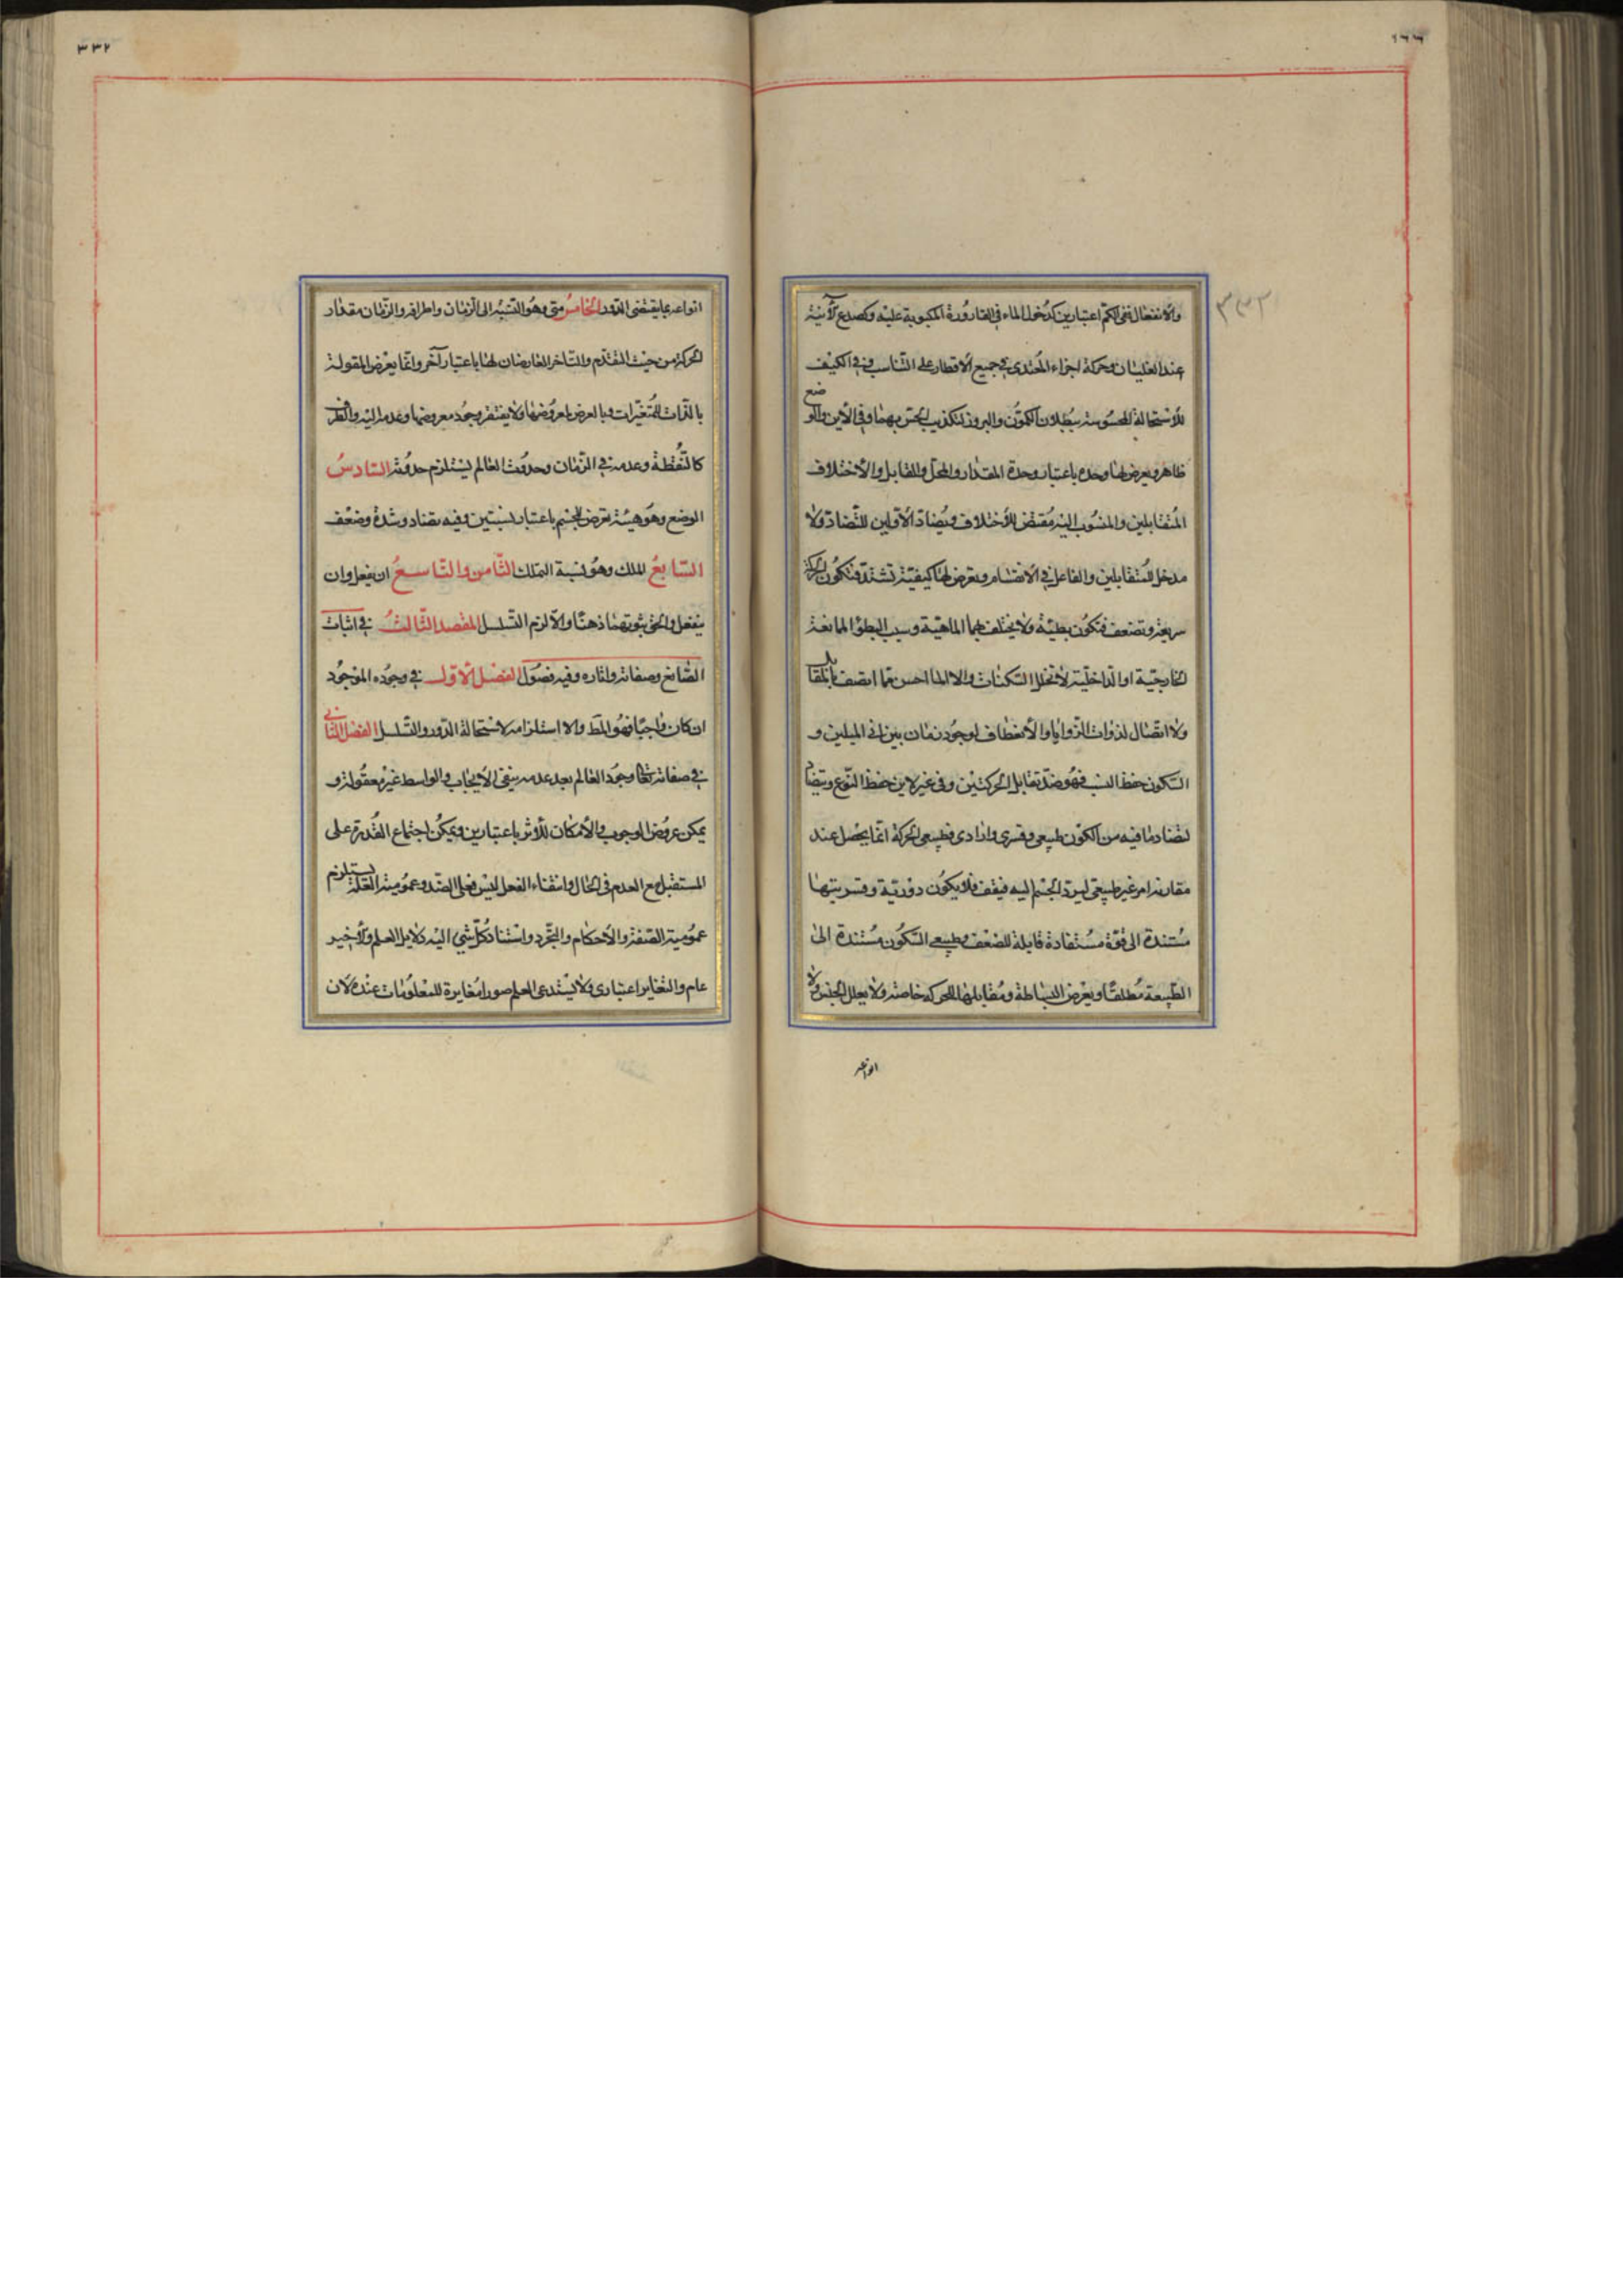 ١٦٦
٣٣٢
والانفعال ففى الكم اعتبارين كدخول الماء فى القارورة المكبوبة عليه وكصدع الآنية
عند الغليان وحركة اجزاء المغتدى فى جميع الاقطار على التناسب وفى الكيف
للاستحالة المحسوسة ببطلان الكمون والبروز لتكذيب الحس بهما وفى الاين والوضع
ظاهر ويعرض لها وحدة باعتبار وحدة المقدار والمحل والقابل والاختلاف
المتقابلين والمنسوب اليه مقتض للاختلاف ويضاد الاولين للتضاد ولا
مدخل للمتقابلين والفاعل فى الانقسام ويعرض لها كيفية تشتد فتكون الحركة
سريعة وتضعف فتكون بطيئة ولا يختلف بهما الماهية وسبب البطؤ الممانعة
الخارجية او الداخلية لا تخلل السكنات والا لما احس بما اتصف بالمقابل
ولا اتصال لذوات الزوايا والانعطاف لوجود زمان بين انى الميلين و
السكون حفظ النسب فهو ضد تقابل الحركتين وفى غير الاين حفظ النوع ويتضاد
لتضاد ما فيه من الكون طبيعى وقسرى وارادى فطبيعى الحركة انما يحصل عند
مقارنة امر غير طبيعى ليرد الجسم اليه فيقف فلا يكون دورية وقسريتها
مستندة الى قوة مستفادة قابلة للضعف وطبيعى السكون مستندة الى
الطبيعة مطلقا ويعرض البساطة ومقابلها للحركة خاصة ولا يعلل الجنس ولا
انواعه
انواعه بما يقتضى الدور الخامس متى وهو النسبة الى الزمان واطرافه والزمان مقدار
الحركة من حيث التقدم والتاخر العارضان لها باعتبار آخر وانما يعرض المقولة
بالذات للمتغيرات وبالعرض لمعروضها ولا يفتقر وجود معروضها وعدمه اليه والطرف
كالنقطة وعدمه فى الزمان وحدوث العالم يستلزم حدوثه السادس
الوضع وهو هيئة تعرض للجسم باعتبار نسبتين وفيه تضاد وشدة وضعف
السابع الملك وهو نسبة التملك الثامن والتاسع ان يفعل وان
ينفعل والحق ثبوتهما ذهنا والا لزم التسلسل المقصد الثالث فى اثبات
الصانع وصفاته واثاره وفيه فصول الفصل الاول فى وجوده الموجود
ان كان واجبا فهو المط والا استلزامه لاستحالة الدور والتسلسل الفصل الثانى
فى صفاته تعالى وجود العالم بعد عدمه ينفى الايجاب والواسط غير معقولة و
يمكن عروض الوجوب والامكان للاثر باعتبارين ويمكن اجتماع القدرة على
المستقبل مع العدم فى الحال وانتفاء الفعل ليس فعل الضد وعمومية العلة يستلزم
عمومية الصفة والاحكام والتجرد واستناد كل شى اليه دلايل العلم والاخير
عام والتغاير اعتبارى ولا يستدعى العلم صورا مغايرة للمعلومات عنده لان